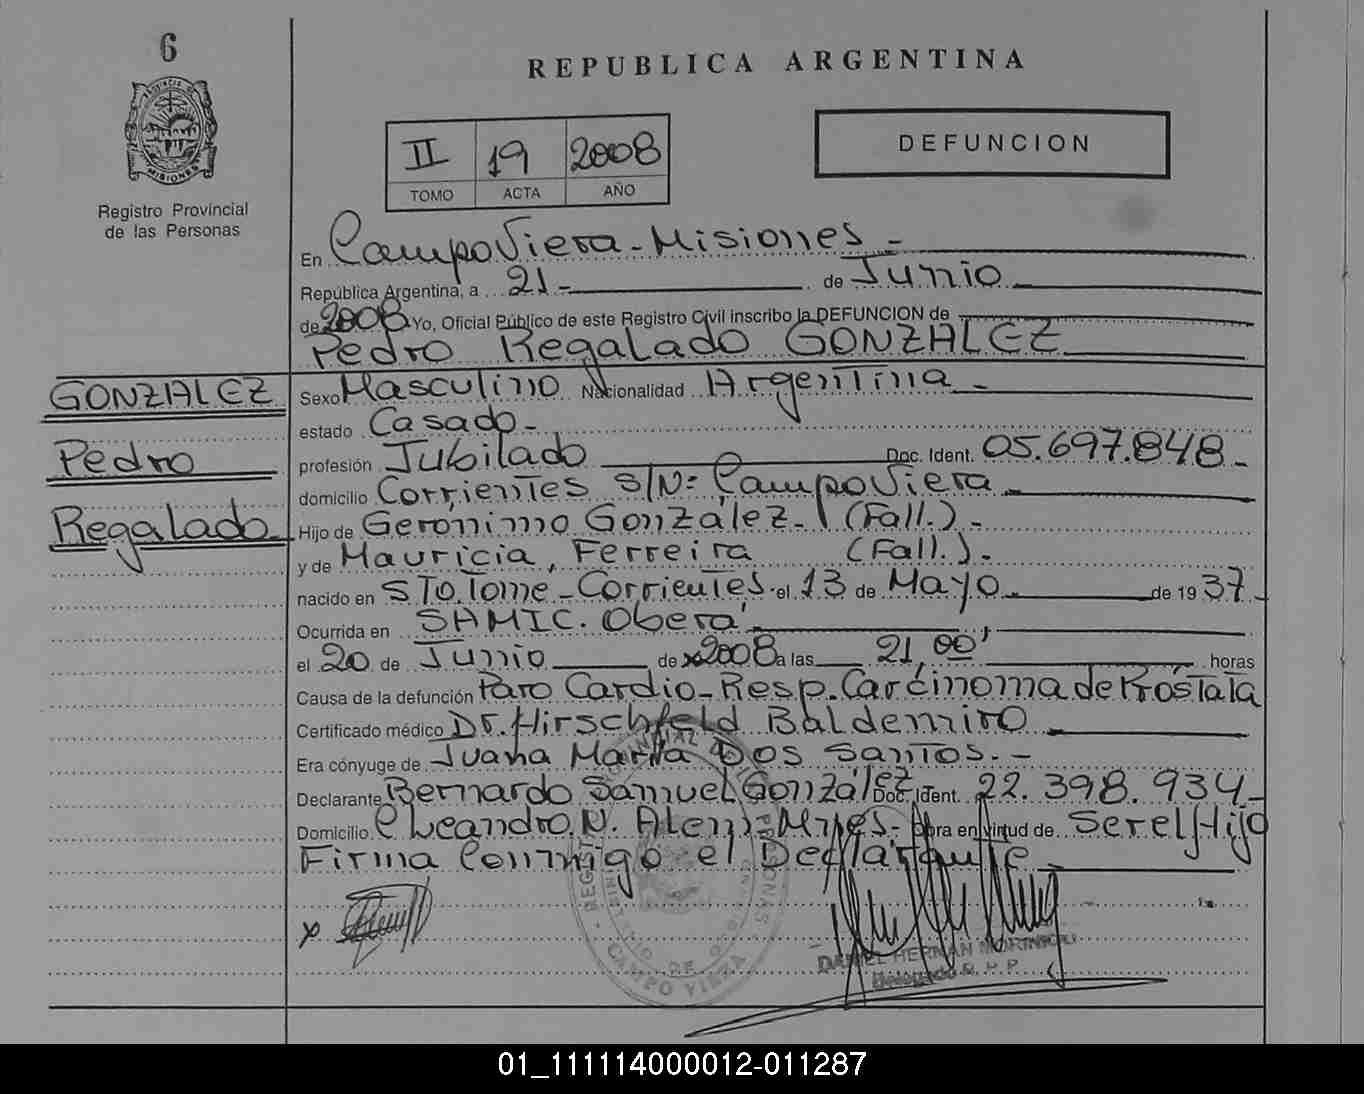 6
PROVINCIA DE
MISIONES
Registro Provincial
de las Personas
REPUBLICA ARGENTINA
II 19 2008
TOMO ACTA AÑO
DEFUNCION
En Campo Viera - Misiones -
República Argentina, a 21 - de Junio
de 2008 Yo, Oficial Público de este Registro Civil inscribo la DEFUNCION de
Pedro Regalado GONZALEZ
GONZALEZ
Pedro
Regalado
Sexo Masculino Nacionalidad Argentina -
estado Casado -
profesión Jubilado Doc. Ident. 05.697.848 -
domicilio Corrientes S/Nº Campo Viera
Hijo de Gerónimo González - (Fall.) -
y de Mauricia, Ferreira (Fall.) -
nacido en Sto. Tome - Corrientes - el 13 de Mayo de 1937 -
Ocurrida en SAMIC. Oberá
el 20 de Junio de 2008 a las 21,00' horas
Causa de la defunción Paro Cardio - Resp. Carcinoma de Próstata
Certificado médico Dr. Hirschfeld Baldemiro
Era cónyuge de Juana María Dos Santos. -
Declarante Bernardo Samuel González - Doc. Ident. 22.398.934 -
Domicilio Leandro. N. Alem - Mnes - Obra en virtud de Ser el Hijo
Firma Conmigo el Declarante
x
REGISTRO PROVINCIAL DE LAS PERSONAS
CAMPO VIERA
DANIEL HERNAN
Delegado R. P. P.
01_111114000012-011287